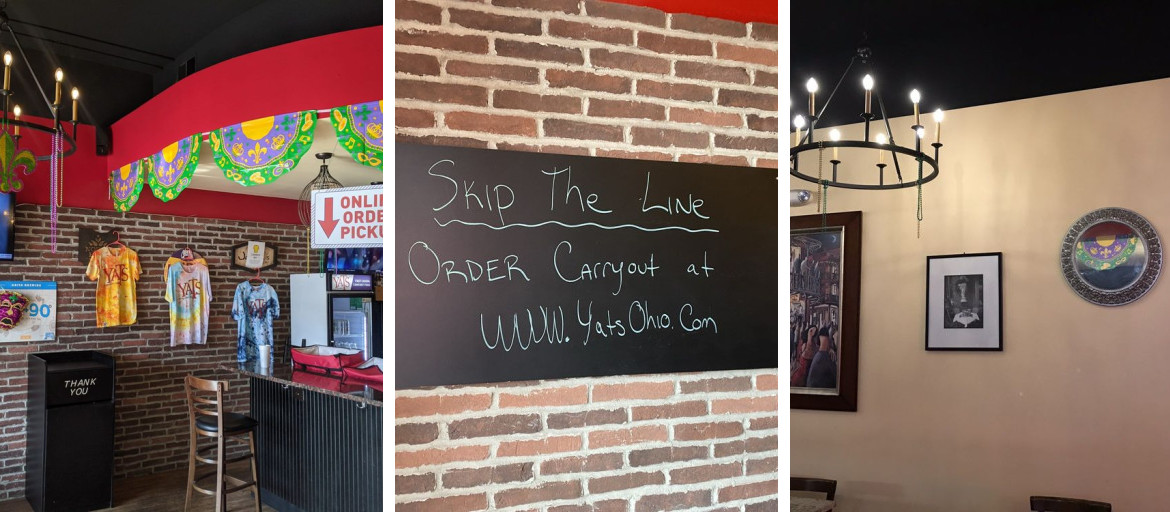 ONLI
ORDE
PICKU
YATS
YATS
YATS
YATS
90
THANK
YOU
Skip The Line
Order Carryout at
WWW.YatsOhio.Com